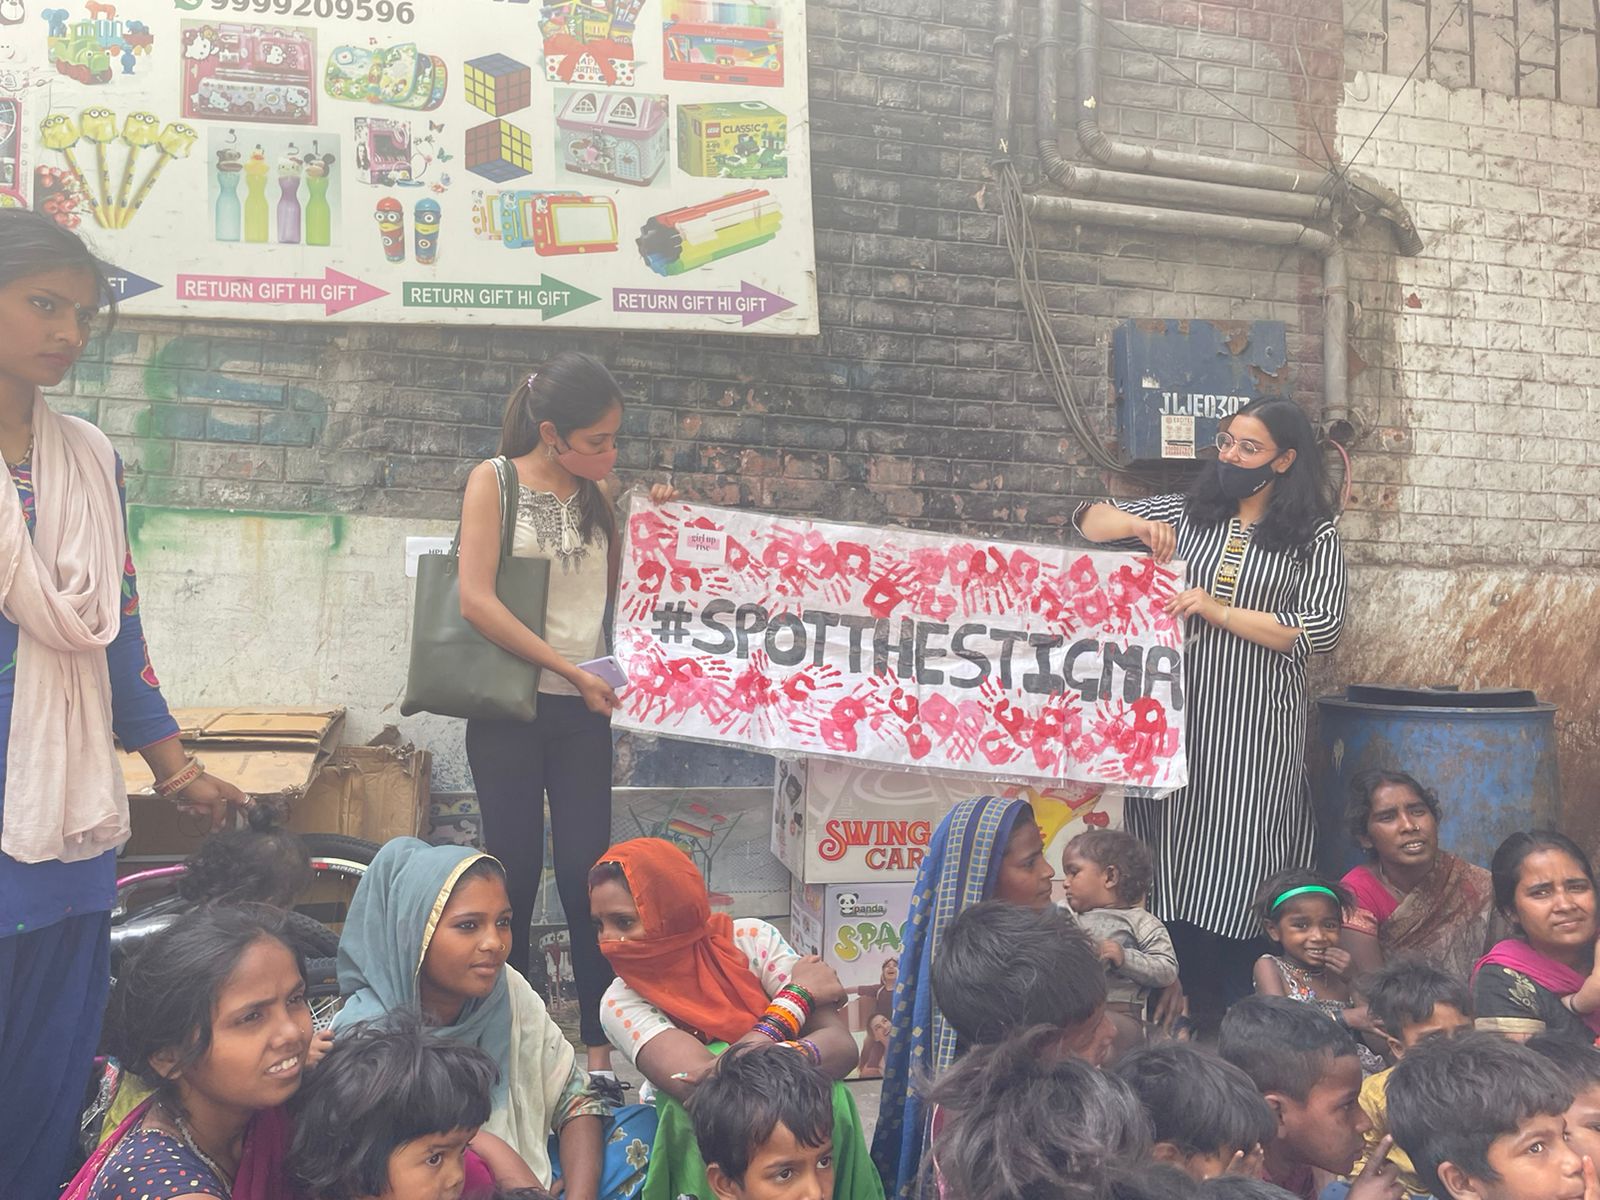 9999209596
CLASSIC
RETURN GIFT HI GIFT
RETURN GIFT HI GIFT
RETURN GIFT HI GIFT
JWE0307
girl up
rise
#SPOTTHESTIGMA
SWING
CAR
panda